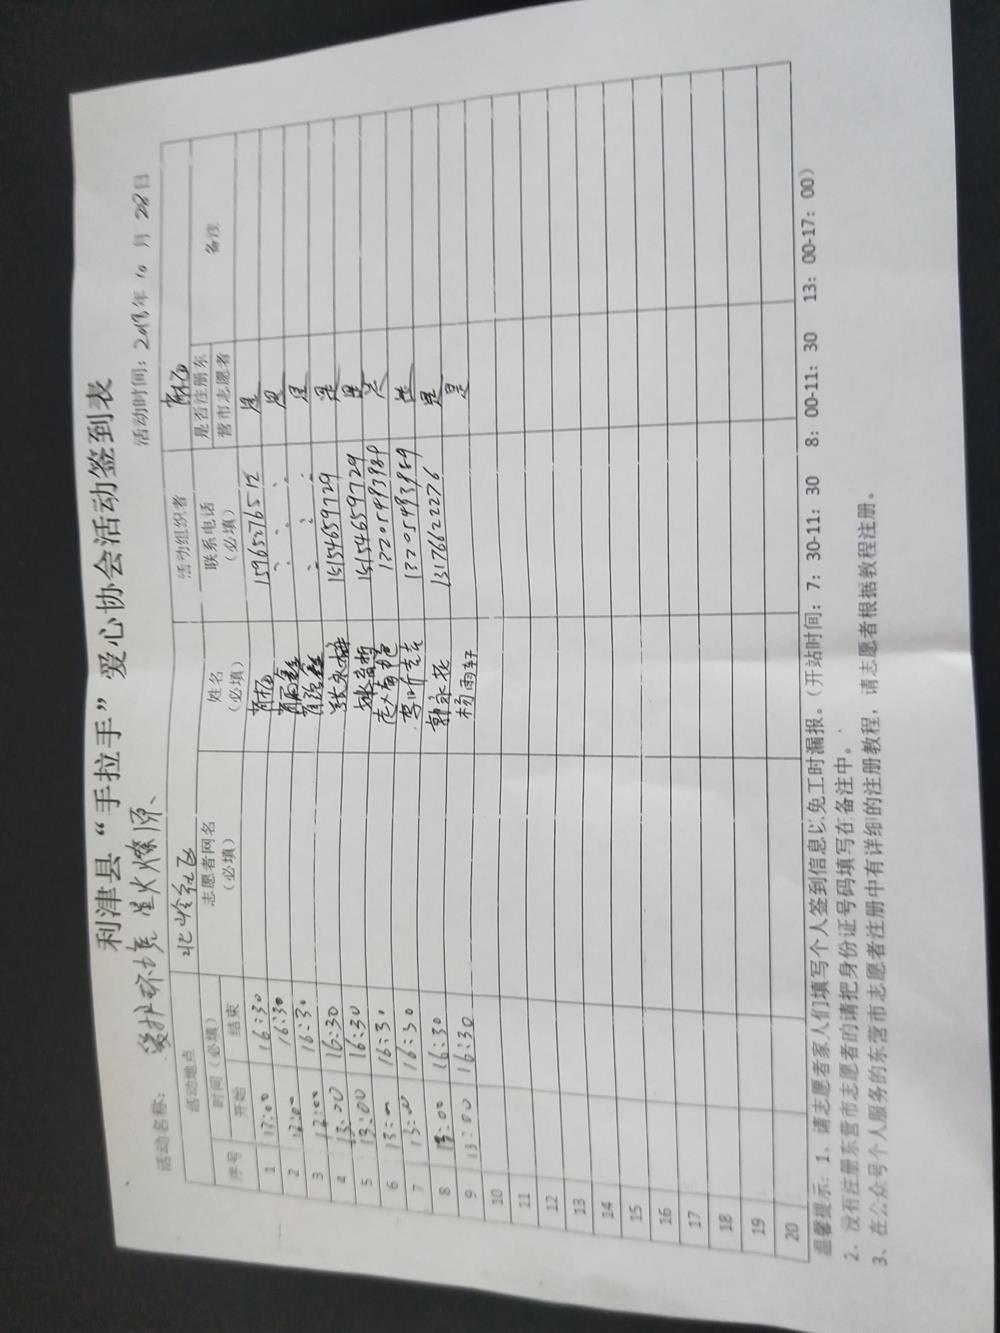 利津县“手拉手”爱心协会活动签到表
活动名称: 爱护环境 星火燎原、 活动时间: 2018年 10 月 28日
活动地点 北岭社区 活动组织者
序号 时间(必填) 志愿者网名(必填) 姓名(必填) 联系电话(必填) 是否注册东营市志愿者 备注
开始 结束
1 13:00 16:30 15965276512 是
2 13:00 16:30 是
3 13:00 16:30 是
4 13:00 16:30 张永梅 15154659729 是
5 13:00 16:30 15154659729 是
6 13:00 16:30 13205493989 是
7 13:00 16:30 13205493989 是
8 13:00 16:30 郭永花 13176622276 是
9 13:00 16:30 杨雨轩 是
10
11
12
13
14
15
16
17
18
19
20
温馨提示: 1、请志愿者家人们填写个人签到信息以免工时漏报。(开站时间: 7: 30-11: 30 8: 00-11: 30 13: 00-17: 00)
2、没有注册东营市志愿者的请把身份证号码填写在备注中。
3、在公众号个人服务的东营市志愿者注册中有详细的注册教程, 请志愿者根据教程注册。